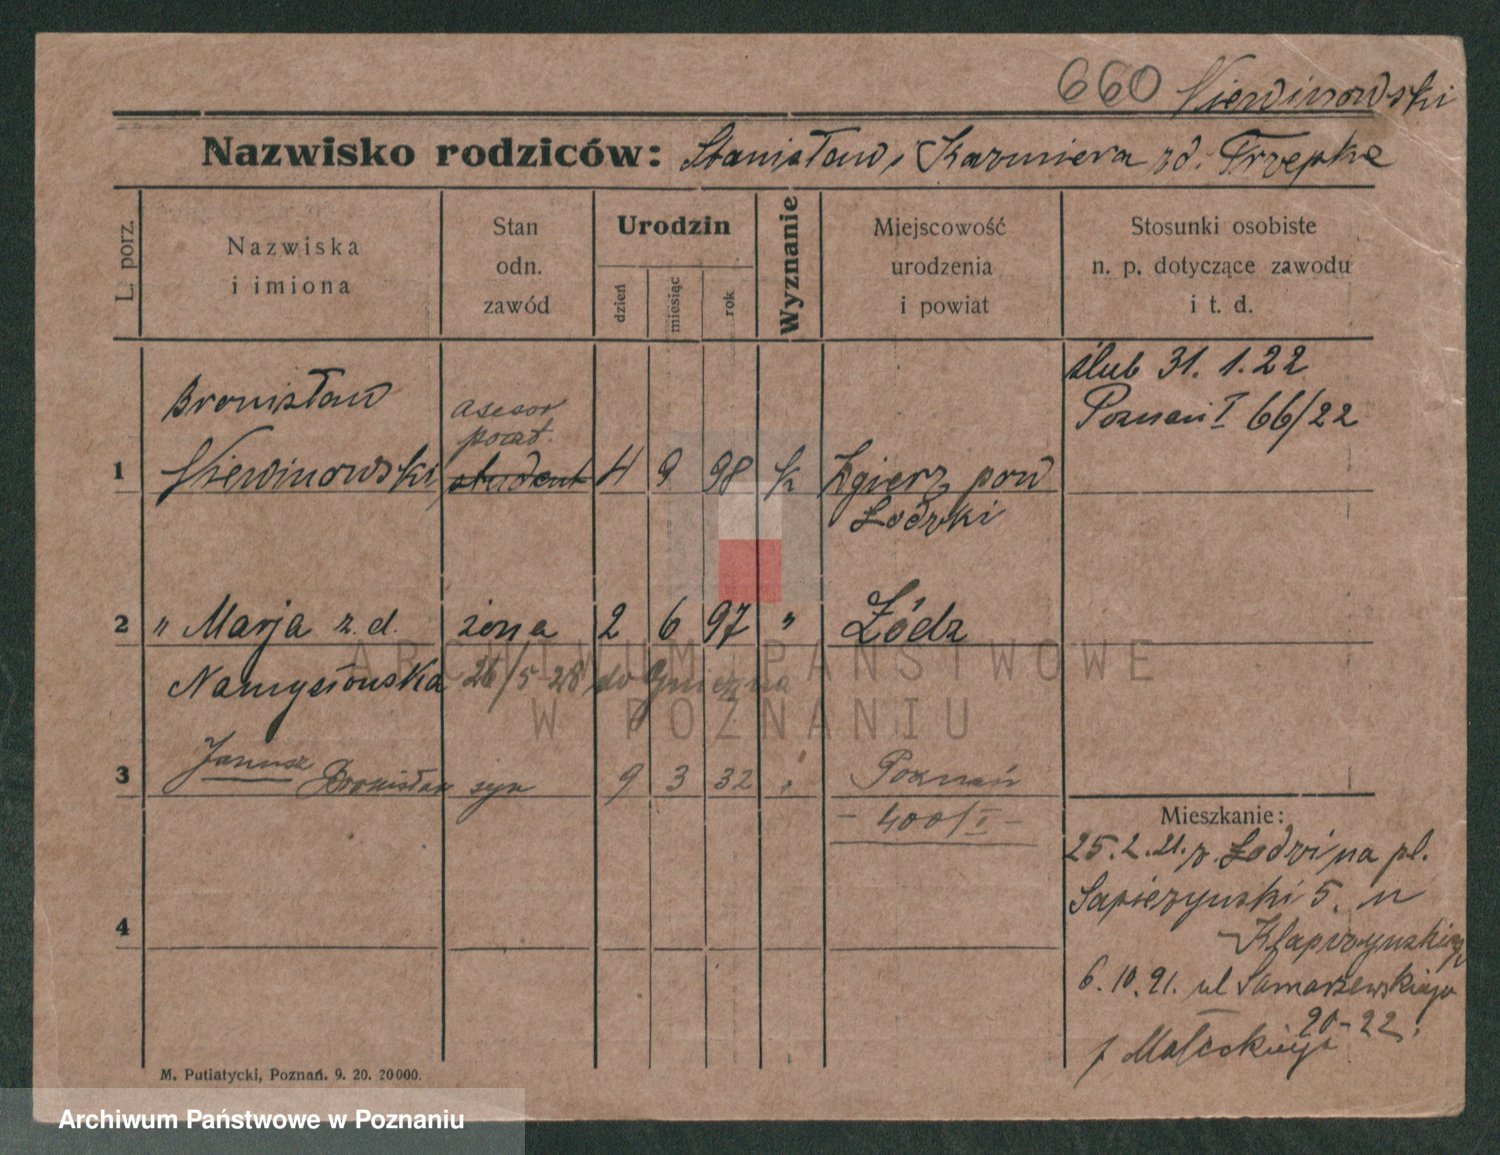 660 Niewinowski
Nazwisko rodziców: Stanisław, Kazmiera zd. Trzepke
L. porz.
Nazwiska
i imiona
Stan
odn.
zawód
Urodzin
dzień
miesiąc
rok
Wyznanie
Miejscowość
urodzenia
i powiat
Stosunki osobiste
n. p. dotyczące zawodu
i t. d.
ślub 31. 1. 22
Poznań I 66/22
Bronisław
asesor
poczt.
1 Niewinowski student 4 9 98 k Zgierz pow
Łodzki
2 " Marja z. d. żona 2 6 97 " Łódz
Namysłowska 26/5 28 do Gniezna
Janusz
3 Bronisław syn 9 3 32 " Poznań
- 400/I -
Mieszkanie:
25. 2. 21. z Łodzi na pl.
Sapieżyński 5. u
4
Klapczyńskiego
6. 10. 21. ul Samarzewskiego
20-22.
Małeckiego
M. Putiatycki, Poznań. 9. 20. 20000.
ARCHIWUM PAŃSTWOWE
W POZNANIU
Archiwum Państwowe w Poznaniu